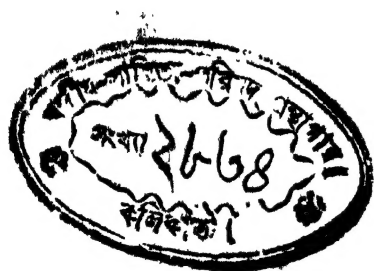 বঙ্গীয় সাহিত্য পরিষদ্ গ্রন্থাগার।
সংখ্যা
কলিকাতা।